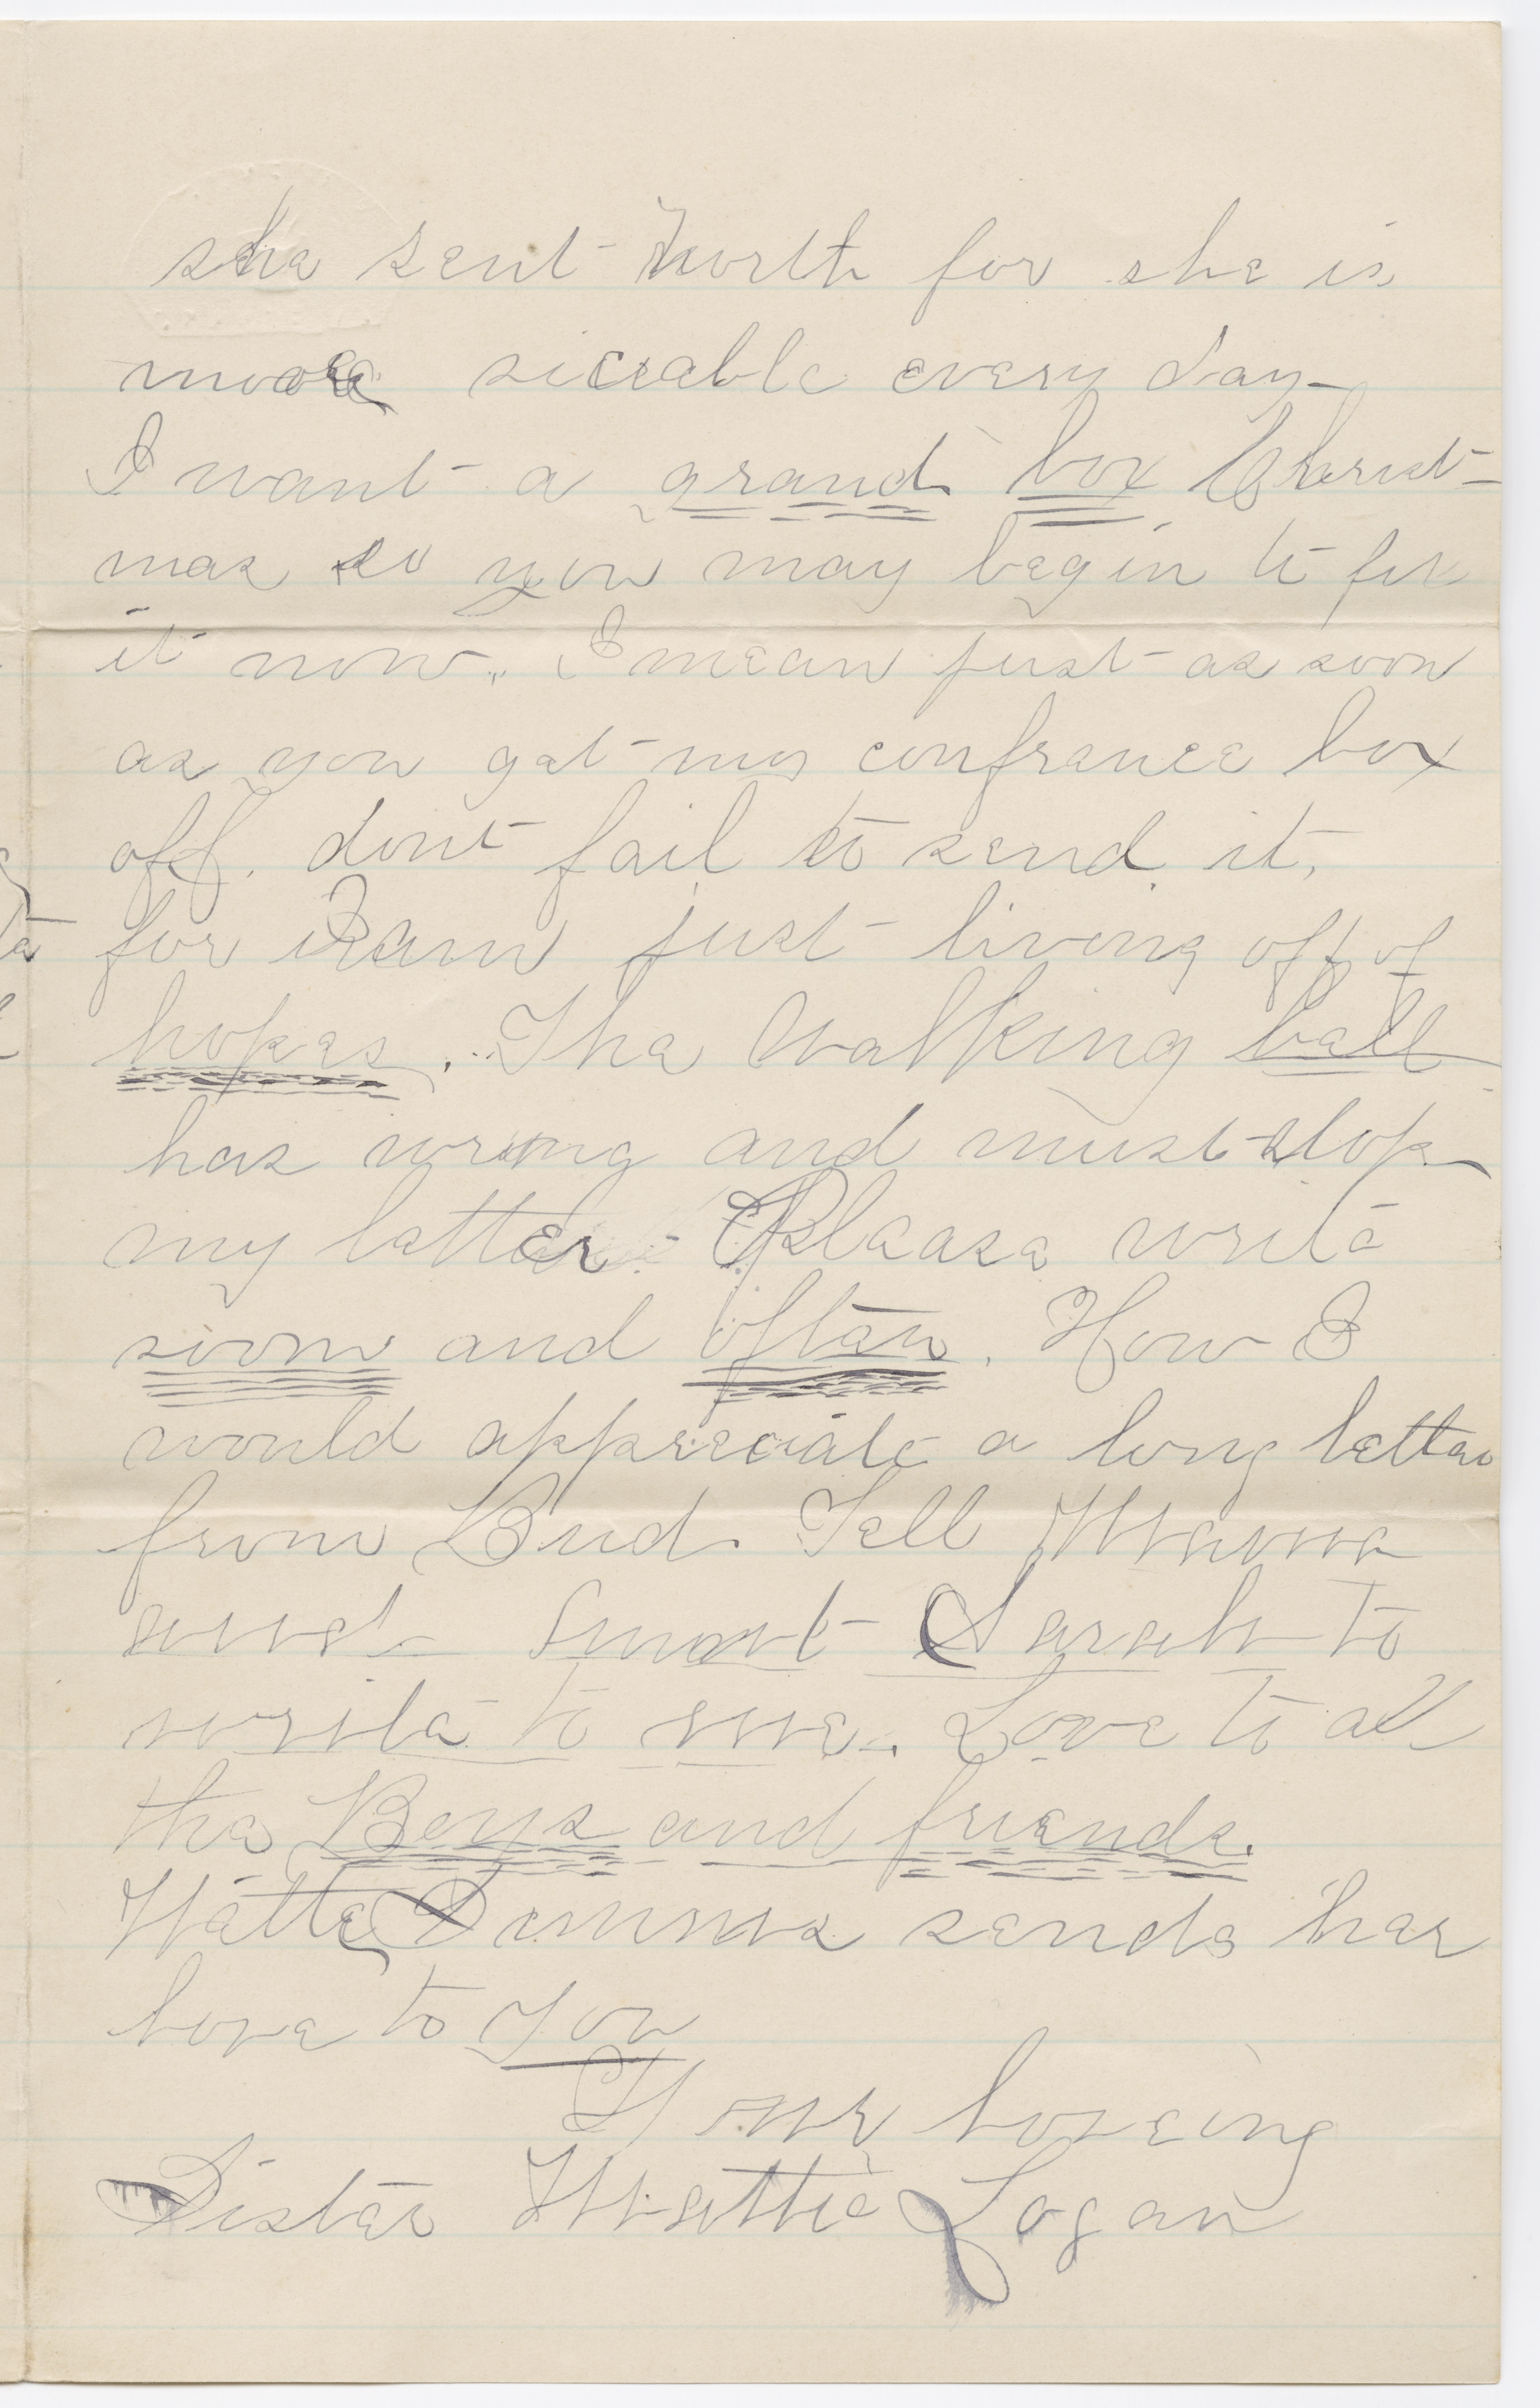 she sent North for she is
more siceable every day
I want a grand box Christ-
mas so you may begin to fix
it now. I mean just as soon
as you get my confrance box
off. dont fail to send it,
for I am just living off of
hopes. The Walking bell
has wrung and must stop
my letter. Please write
soon and often. How I
would appreciate a long letter
from Bud. Tell Mama
and Smart Sarah to
write to me. Love to all
the Boys and friends.
Hattie sends her
love to You
Your loveing
Sister Mattie Logan